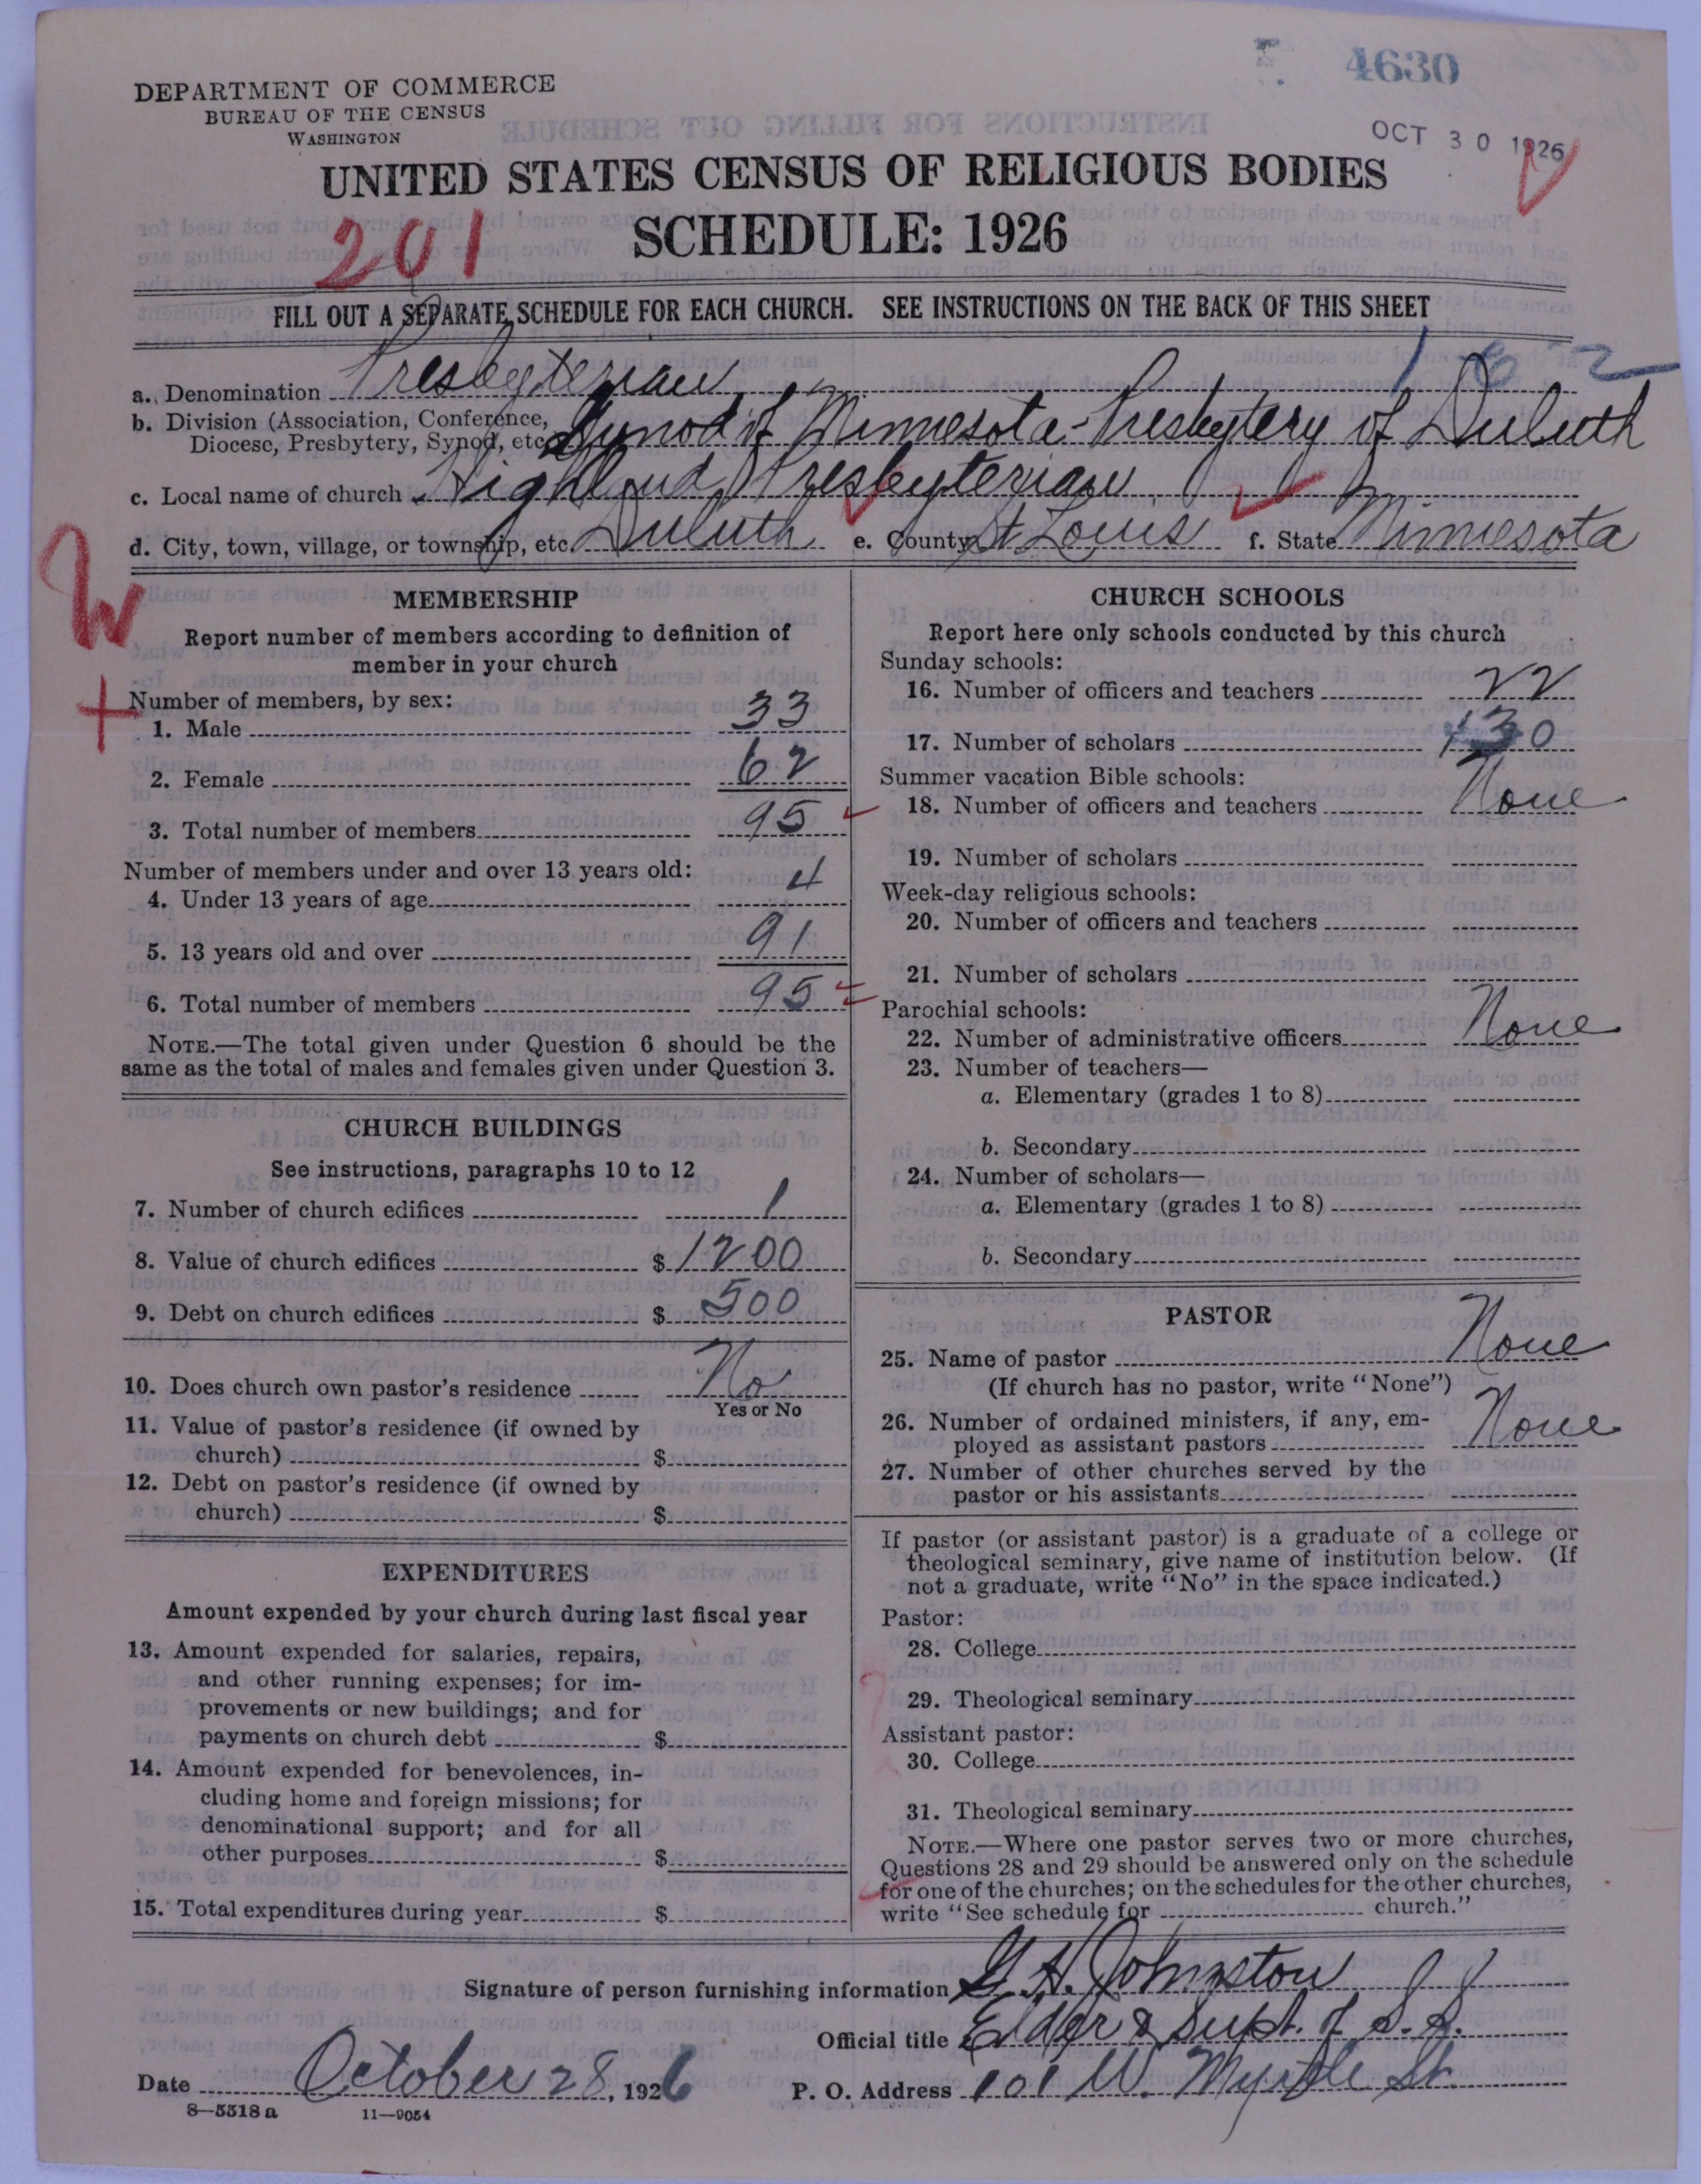 4630
DEPARTMENT OF COMMERCE
BUREAU OF THE CENSUS
WASHINGTON
OCT 30 1926
UNITED STATES CENSUS OF RELIGIOUS BODIES
201
SCHEDULE: 1926
FILL OUT A SEPARATE SCHEDULE FOR EACH CHURCH. SEE INSTRUCTIONS ON THE BACK OF THIS SHEET
a. Denomination Presbyterian
b. Division (Association, Conference,
Diocese, Presbytery, Synod, etc. Synod of Minnesota - Presbytery of Duluth
c. Local name of church Highland Presbyterian
d. City, town, village, or township, etc. Duluth e. County St Louis f. State Minnesota
MEMBERSHIP
Report number of members according to definition of
member in your church
Number of members, by sex:
1. Male 33
2. Female 62
3. Total number of members 95
Number of members under and over 13 years old:
4. Under 13 years of age 4
5. 13 years old and over 91
6. Total number of members 95
NOTE.—The total given under Question 6 should be the
same as the total of males and females given under Question 3.
CHURCH BUILDINGS
See instructions, paragraphs 10 to 12
7. Number of church edifices 1
8. Value of church edifices $ 1200
9. Debt on church edifices $ 500
10. Does church own pastor's residence No
Yes or No
11. Value of pastor's residence (if owned by
church) $
12. Debt on pastor's residence (if owned by
church) $
EXPENDITURES
Amount expended by your church during last fiscal year
13. Amount expended for salaries, repairs,
and other running expenses; for im-
provements or new buildings; and for
payments on church debt $
14. Amount expended for benevolences, in-
cluding home and foreign missions; for
denominational support; and for all
other purposes $
15. Total expenditures during year $
CHURCH SCHOOLS
Report here only schools conducted by this church
Sunday schools:
16. Number of officers and teachers 22
17. Number of scholars 130
Summer vacation Bible schools:
18. Number of officers and teachers None
19. Number of scholars
Week-day religious schools:
20. Number of officers and teachers
21. Number of scholars
Parochial schools:
22. Number of administrative officers None
23. Number of teachers—
a. Elementary (grades 1 to 8)
b. Secondary
24. Number of scholars—
a. Elementary (grades 1 to 8)
b. Secondary
PASTOR
25. Name of pastor None
(If church has no pastor, write "None")
26. Number of ordained ministers, if any, em-
ployed as assistant pastors None
27. Number of other churches served by the
pastor or his assistants
If pastor (or assistant pastor) is a graduate of a college or
theological seminary, give name of institution below. (If
not a graduate, write "No" in the space indicated.)
Pastor:
28. College
29. Theological seminary
Assistant pastor:
30. College
31. Theological seminary
NOTE.—Where one pastor serves two or more churches,
Questions 28 and 29 should be answered only on the schedule
for one of the churches; on the schedules for the other churches,
write "See schedule for church."
Signature of person furnishing information G. H. Johnston
Official title Elder & Supt. of S.S.
Date October 28, 1926 P. O. Address 101 W. Myrtle St.
8—5518 a 11—9054